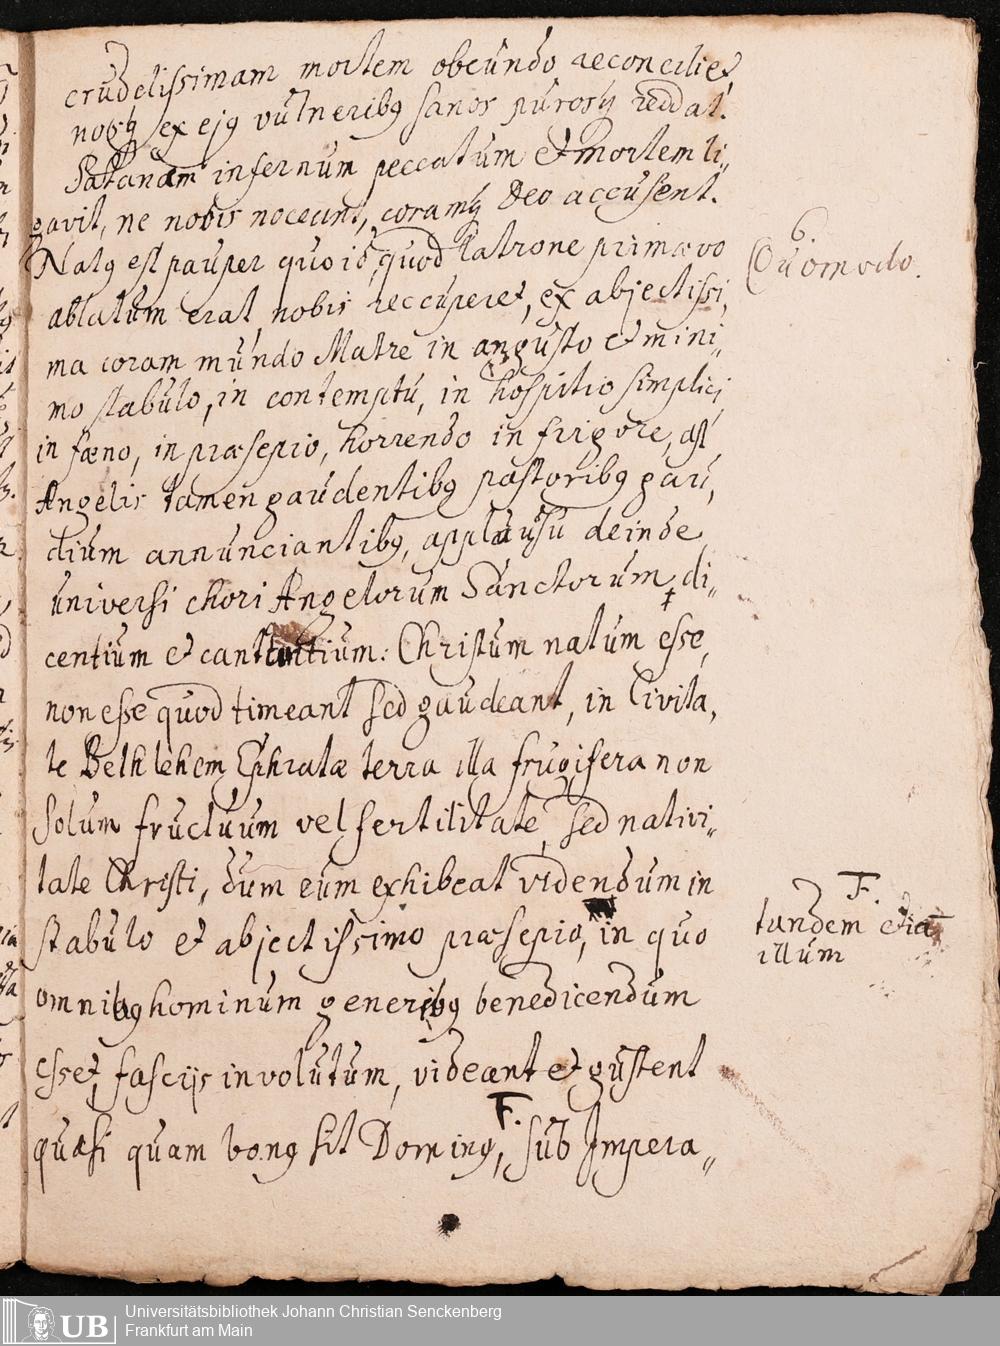 crudelissimam mortem obeundo reconciliet
nosq ex ejq vulneribq sanos purosq reddat.
Satanam infernum peccatum et mortem li„
gavit, ne nobis noceant, coramq Deo accusent.
Natq est pauper quo id, quod latrone primævo
ablatum erat nobis reccuperet, ex abjectissi„
ma coram mundo Matre in angusto et mini„
mo stabulo, in contemptu, in hospitio simplici
in fæno, in præsepio, horrendo in frigore, ast
Angelis tamen gaudentibq pastoribq gau„
dium annunciantibq, applausu deinde
universi chori Angelorum Sanctorum di„
centium et cantantium: Christum natum esse,
non esse quod timeant sed gaudeant, in Civita„
te Bethlehem Ephratæ terra illa frugifera non
solum fructuum vel fertilitate, sed nativi„
tate Christi, dum eum exhibeat videndum in
stabulo et abjectissimo præsepio, in quo
omnibq hominum generibq benedicendum
esset, fasciis involutum, videant et gustent
quasi quam bonq sit Dominq, F. sub Impera„
6.
Quomodo.
F.
tandem etiā
illum
UB
Universitätsbibliothek Johann Christian Senckenberg
Frankfurt am Main